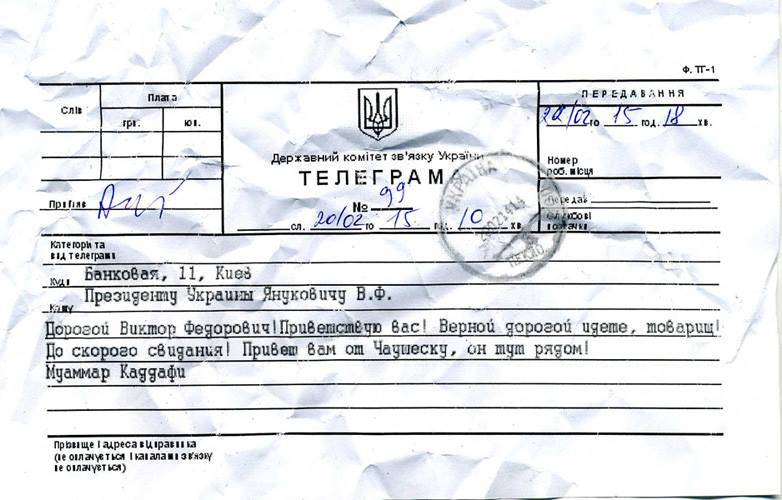 Ф. ТГ-1
Слів
Плата
грн.
коп.
Прийняв
Державний комітет зв'язку України
ТЕЛЕГРАМА
№ 99
20/02 15 год. 10 хв.
сл.
ПЕРЕДАВАННЯ
го 15 год. 18 хв.
Номер
роб. місця
Передав
Службові
позначки
УКРАЇНА
ПЕКЛО
Категорія та
вид телеграми
Куди Банковая, 11, Киев
Кому Президенту Украины Януковичу В.Ф.
Дорогой Виктор Федорович!Приветствую вас! Верной дорогой идете, товарищ!
До скорого свидания! Привет вам от Чаушеску, он тут рядом!
Муаммар Каддафи
Прізвище і адреса відправника
(не оплачується і каналами зв'язку
не оплачується)